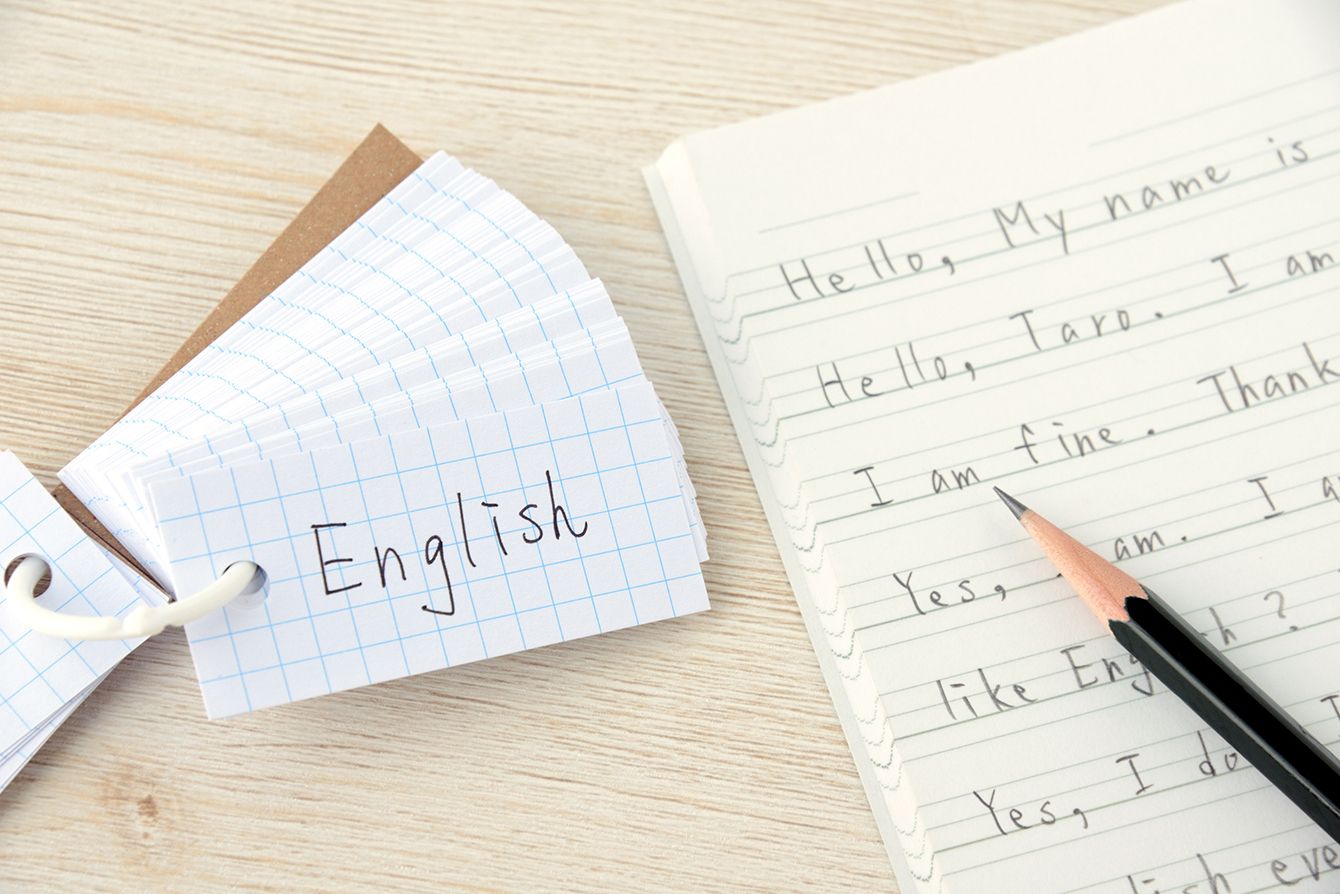 English
Hello, My name is
Hello, Taro. I am
I am fine. Thank
Yes, am. I
like Eng h ?
Yes, I do
lish eve